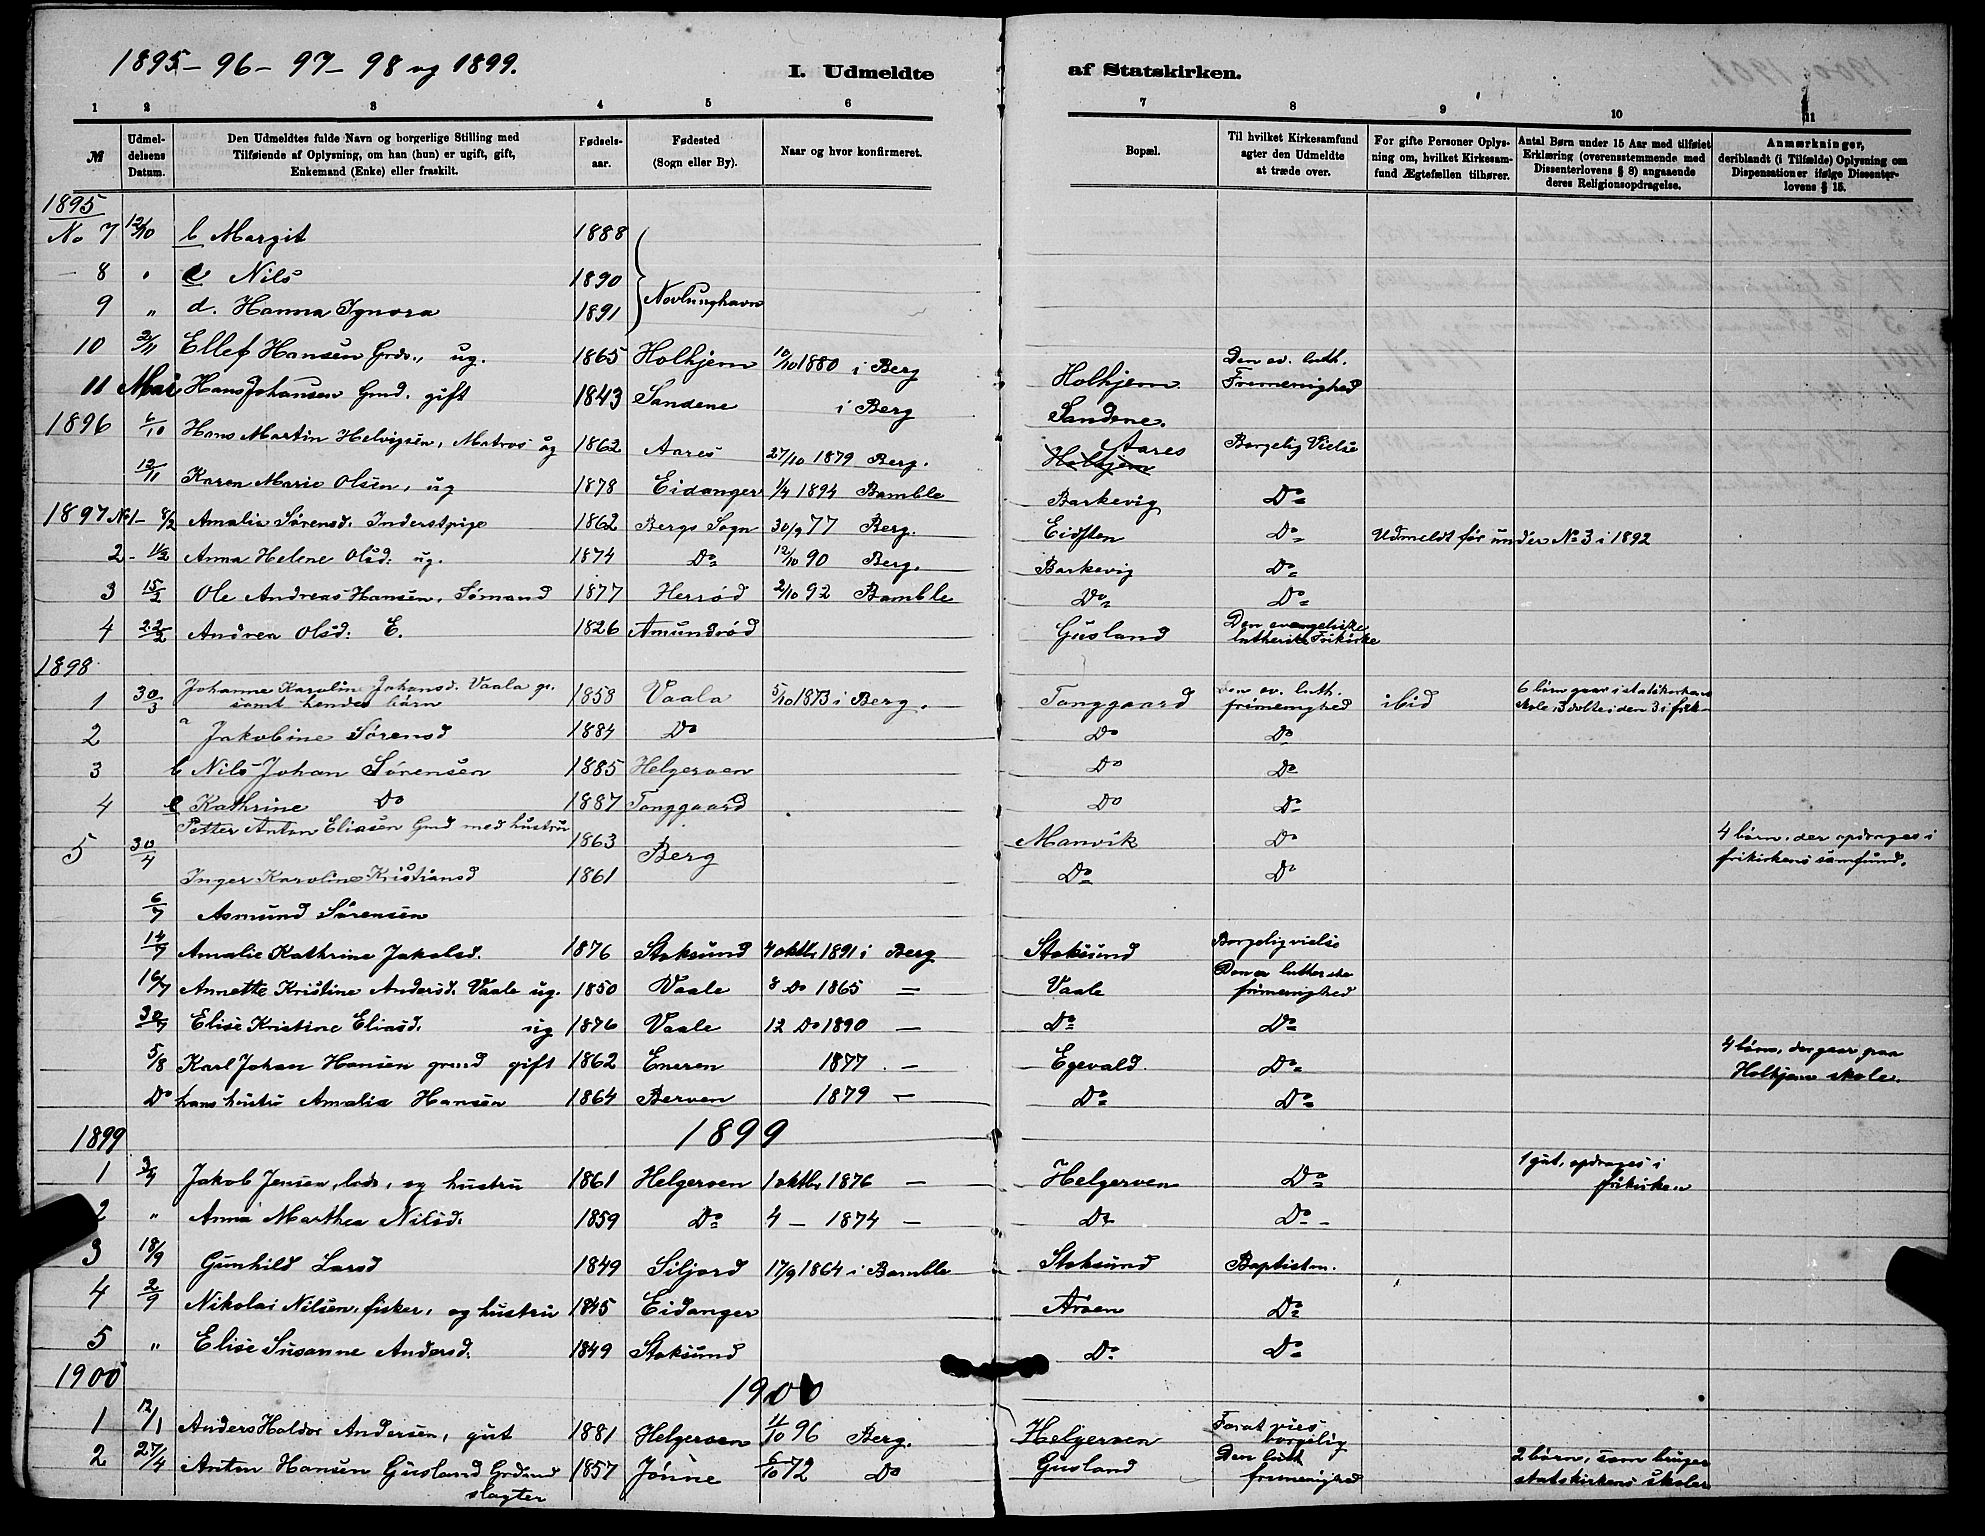 1895 - 96 - 97 - 98 og 1899.
I. Udmeldte af Statskirken.
1 2 3 4 5 6 7 8 9 10 11
№
Udmeldelsens Datum.
Den Udmeldtes fulde Navn og borgerlige Stilling med Tilføiende af Oplysning, om han (hun) er ugift, gift, Enkemand (Enke) eller fraskilt.
Fødselsaar.
Fødested (Sogn eller By).
Naar og hvor konfirmeret.
Bopæl.
Til hvilket Kirkesamfund agter den Udmeldte at træde over.
For gifte Personer Oplysning om, hvilket Kirkesamfund Ægtefællen tilhører.
Antal Børn under 15 Aar med tilføiet Erklæring (overensstemmende med Dissenterlovens § 8) angaaende deres Religionsopdragelse.
Anmærkninger, deriblandt (i Tilfælde) Oplysning om Dispensationer ifølge Dissenterlovens § 15.
1895
No 7 12/10 b Margit 1888
- 8 " c Nils 1890 Novlunghavn
9 " d. Hanna Ignora 1891
10 2/11 Ellef Hansen Grdr., ug. 1865 Holhjem 10/10 1880 i Berg Holhjem Den ev. luth. Fremenighed
11 Mai Hans Johansen Gmd. gift 1843 Sandene i Berg Sandene.
1896 6/10 Hans Martin Helvigsen, Matros ug 1862 Aares 27/10 1879 Berg. Holhjem Aares Borgelig Vielse
12/11 Karen Marie Olsen, ug 1878 Eidanger 1/4 1894 Bamble Barkevig Do
1897 No 1 - 8/2 Amalie Sørensd. Inderstpige 1862 Bergs Sogn 30/9 77 Berg. Eidsten Do Udmeldt før under No 3 i 1892
2 - 11/2 Anna Helene Olsd: ug. 1874 Do 12/10 90 Berg. Barkevig Do
3 15/2 Ole Andreas Hansen, Sømand 1877 Herrød 2/10 92 Bamble Do Do
4 22/2 Andrea Olsd: E. 1826 Amundrød Gusland Den evangeliske lutherske Frikirke
1898
1 30/3 Johanne Karoline Johansd. Vaala g. samt hendes børn 1858 Vaala 5/10 1873 i Berg. Tanggaard Den ev. luth. frimenighed ibid 6 børn gaar i statskirkens skole, 3 døbte i den 3 i frik-
2 a Jakobine Sørensd 1884 Do Do Do
3 b Nils Johan Sørensen 1885 Helgeroen Do Do
4 c Kathrine Do 1887 Tanggaard Do Do
5 30/4 Petter Anton Eliasen Gmd med hustru 1863 Berg Manvik Do 4 børn, der opdrages i frikirkens samfund.
Inger Karoline Kristiansd 1861 Do Do
6/7 Asmund Sørensen
14/7 Amalie Kathrine Jakobsd. 1876 Stoksund 4 oktbr 1891 i Berg Stoksund Borgelig vielse
16/7 Annette Kristine Andersd. Vaale ug. 1850 Vaale 8 Do 1865 = Vaale Den ev lutherske frimenighed
30/7 Elise Kristine Eliasd. ug 1876 Vaale 12 Do 1890 - Do Do
5/8 Karl Johan Hansen grmd gift 1862 Eneren 1877 - Egevald. Do 4 børn, der gaar paa Holhjem skole.
Do hans hustru Amalia Hansen 1864 Berven 1879 - Do Do
1899 1899
1 3/4 Jakob Jensen, lods, og hustru 1861 Helgeroen 1 oktbr 1876 - Helgeroen Do 1 gut, opdrages i frikirken
2 " Anna Marthea Nilsd. 1859 Do 4 - 1874 - Do Do -
3 18/9 Gunhild Larsd 1849 Siljord 17/9 1864 i Bamble Stoksund Baptisten.
4 2/9 Nikolai Nilsen, fisker, og hustru 1845 Eidanger Aroen Do
5 " Elise Susanne Andersd. 1849 Stoksund Do Do
1900 1900
1 12/1 Anders Haldor Andersen, gut 1881 Helgeroen 4/10 96 Berg. Helgeroen For at vies borgelig
2 27/4 Anton Hansen Gusland Grdmd slagter 1857 Jønne 6/10 72 Do Gusland Den luth frimenighed 2 børn, som bruger statskirkens skoler